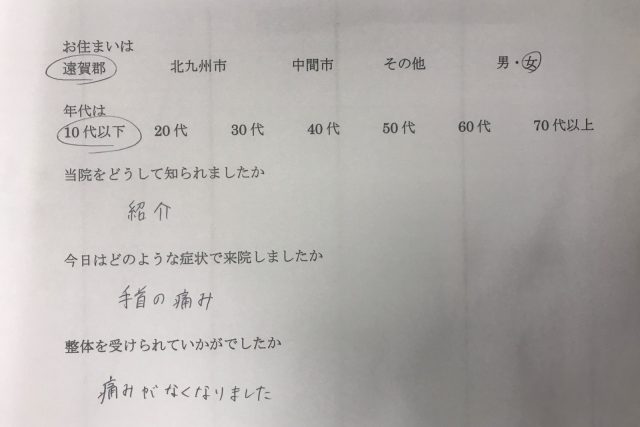 お住まいは
遠賀郡 北九州市 中間市 その他 男・女
年代は
10代以下 20代 30代 40代 50代 60代 70代以上
当院をどうして知られましたか
紹介
今日はどのような症状で来院しましたか
手首の痛み
整体を受けられていかがでしたか
痛みがなくなりました